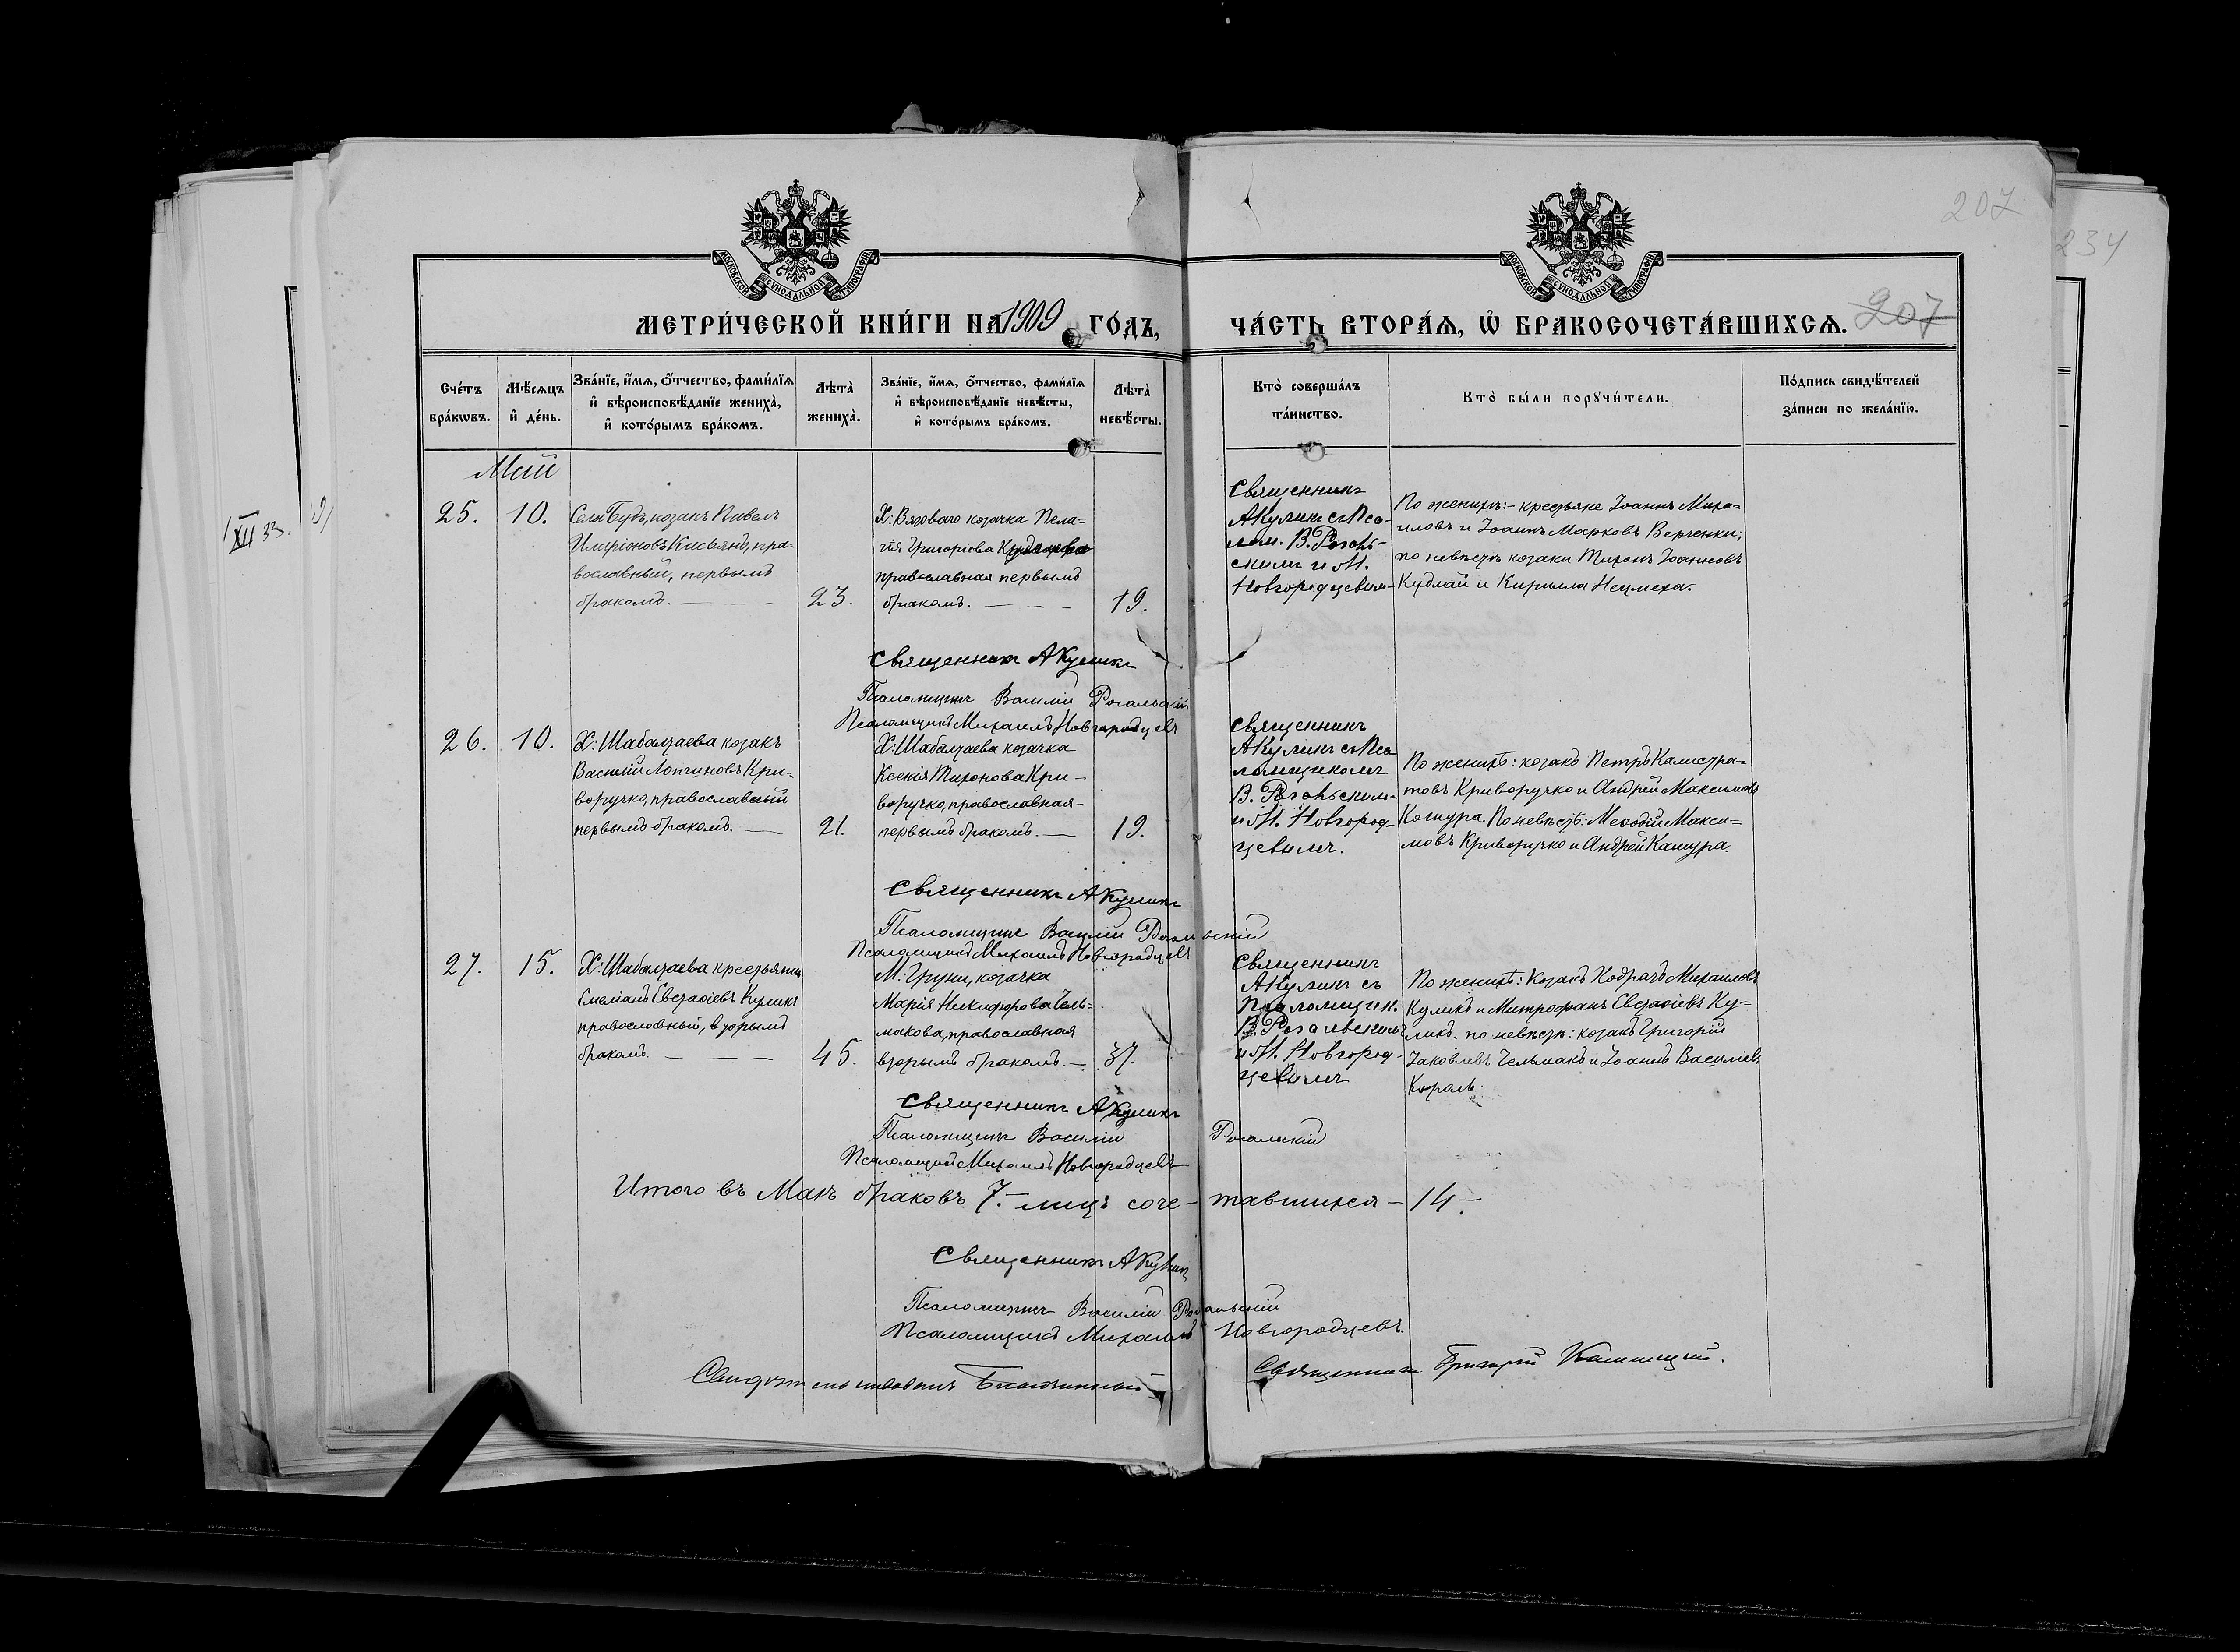 207
234
МОСКОВСКОЙ СѴНОДАЛЬНОЙ ТИПОГРАФІИ
МОСКОВСКОЙ СѴНОДАЛЬНОЙ ТИПОГРАФІИ
МЕТРИ́ЧЕСКОЙ КНИ́ГИ НА 1909 ГО́ДЪ,
ЧА́СТЬ ВТОРА́Я, Ѽ БРАКОСОЧЕТА́ВШИХСЯ. 207
Сче́тъ бра́кѡвъ.
Мѣ́сяцъ и҆ де́нь.
Зва́нїе, и҆́мя, ѻ҆́тчество, фами́лїя и҆ вѣроисповѣ́данїе жениха̀, и҆ кото́рымъ бра́комъ.
Лѣта̀ жениха̀.
Зва́нїе, и҆́мя, ѻ҆́тчество, фами́лїя и҆ вѣроисповѣ́данїе невѣ́сты, и҆ кото́рымъ бра́комъ.
Лѣта̀ невѣ́сты.
Кто̀ соверша́лъ та́инство.
Кто̀ бы́ли порꙋчи́тели.
По́дпись свидѣ́телей за́писи по жела́нїю.
XII 33.
Май
25.
10.
Села Будъ, козакъ Павелъ
Иларіоновъ Касьянъ, пра-
вославный, первымъ
бракомъ.
23.
Х: Вязоваго козачка Пела-
гія Григоріова
православная первымъ
бракомъ.
19.
Священникъ
А Куликъ съ Пса-
лом. В. Рогаль-
скимъ и М.
Новгородцевым
По женихѣ:- крестьяне Іоаннъ Миха-
иловъ и Іоаннъ Марковъ Верченки;
по невѣстѣ козаки Тихонъ Іоанновъ
Кудлай и Кирилла Нецмеха.
Священникъ А Куликъ
Псаломщикъ Василій Рогальскій
Псаломщикъ Михаилъ Новгородцевъ
26.
10.
Х: Шабалтаева козакъ
Василій Логиновъ Кри-
воручко, православный
первымъ бракомъ.
21.
Х: Шабалтаева козачка
Ксенія Тихонова Кри-
воручко, православная
первымъ бракомъ.
19.
Священникъ
А Куликъ съ Пса
ломщикомъ
В. Рогальским
и М. Новгород-
цевымъ.
По женихѣ: козакъ Петръ Калистра-
товъ Криворучко и Андрей Максимовъ
Кошура. По невѣстѣ: Мефодій Макси-
мовъ Криворучко и Андрей Кашура.
Священникъ А Куликъ
Псаломщикъ Василій Рогальскій
Псаломщикъ Михаилъ Новгородцевъ
27.
15.
Х: Шабалтаева крестьянин
Емеліанъ Евстафіевъ Куликъ
православный, вторымъ
бракомъ.
45.
М. Груни, козачка
Марія Никифорова Чель-
макова, православная
вторымъ бракомъ.
37.
Священникъ
А Куликъ съ
Псаломщик.
В. Рогальскимъ
и М. Новгород-
цевымъ
По женихѣ: козакъ Кодратъ Михаиловъ
Куликъ и Митрофанъ Евстафіевъ Ку-
ликъ. по невѣстѣ: козакъ Григорій
Іаковлевъ Чельмакъ и Іоаннъ Василіев
Король.
Священникъ А Куликъ
Псаломщикъ Василій Рогальскій
Псаломщикъ Михаилъ Новгородцевъ
Итого въ Маѣ браковъ 7. – лицъ соче- тавшихся – 14 –
Священникъ А Куликъ
Псаломщикъ Василій Рогальскій
Псаломщикъ Михаилъ Новгородцевъ.
Свидѣтельствовалъ Благочинный Священникъ Григорій